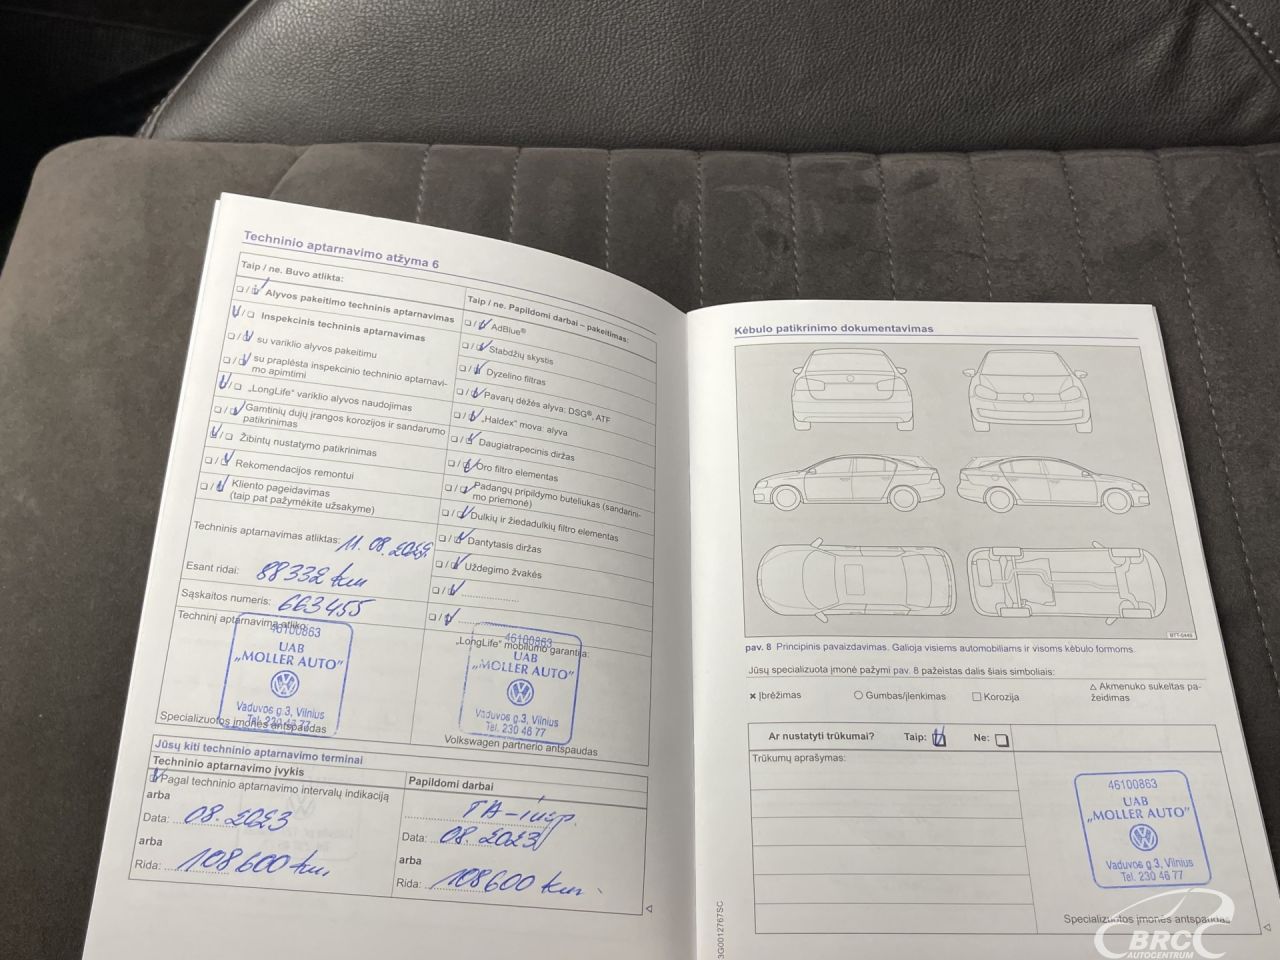 Techninio aptarnavimo atžyma 6
Taip / ne. Buvo atlikta:
Alyvos pakeitimo techninis aptarnavimas
Inspekcinis techninis aptarnavimas
su variklio alyvos pakeitimu
su praplėsta inspekcinio techninio aptarnavi-
mo apimtimi
„LongLife“ variklio alyvos naudojimas
Gamtinių dujų įrangos korozijos ir sandarumo
patikrinimas
Žibintų nustatymo patikrinimas
Rekomendacijos remontui
Kliento pageidavimas
(taip pat pažymėkite užsakyme)
Taip / ne. Papildomi darbai – pakeitimas:
AdBlue®
Stabdžių skystis
Dyzelino filtras
Pavarų dėžės alyva: DSG®, ATF
„Haldex“ mova: alyva
Daugiatrapecinis diržas
Oro filtro elementas
Padangų pripildymo buteliukas (sandarini-
mo priemonė)
Dulkių ir žiedadulkių filtro elementas
Dantytasis diržas
Uždegimo žvakės
Techninis aptarnavimas atliktas: 11.08.2022.
Esant ridai: 88332 km
Sąskaitos numeris: 663455
Techninį aptarnavimą atliko:
46100863
UAB
„MOLLER AUTO”
Vaduvos g.3, Vilnius
Tel. 230 46 77
Specializuotos įmonės antspaudas
„LongLife“ mobilumo garantija:
46100863
UAB
„MOLLER AUTO”
Vaduvos g.3, Vilnius
Tel. 230 46 77
Volkswagen partnerio antspaudas
Jūsų kiti techninio aptarnavimo terminai
Techninio aptarnavimo įvykis
Pagal techninio aptarnavimo intervalų indikaciją
arba
Data: 08.2023
arba
Rida: 108600 km.
Papildomi darbai
TA-insp.
Data: 08.2023
arba
Rida: 108600 km.
Kėbulo patikrinimo dokumentavimas
B7T-0449
pav. 8 Principinis pavaizdavimas. Galioja visiems automobiliams ir visoms kėbulo formoms.
Jūsų specializuota įmonė pažymi pav. 8 pažeistas dalis šiais simboliais:
× Įbrėžimas
Gumbas/įlenkimas
Korozija
Akmenuko sukeltas pa-
žeidimas
Ar nustatyti trūkumai? Taip: Ne:
Trūkumų aprašymas:
46100863
UAB
„MOLLER AUTO”
Vaduvos g.3, Vilnius
Tel. 230 46 77
Specializuotos įmonės antspaudas
3G0012767SC
BRC
AUTOCENTRUM